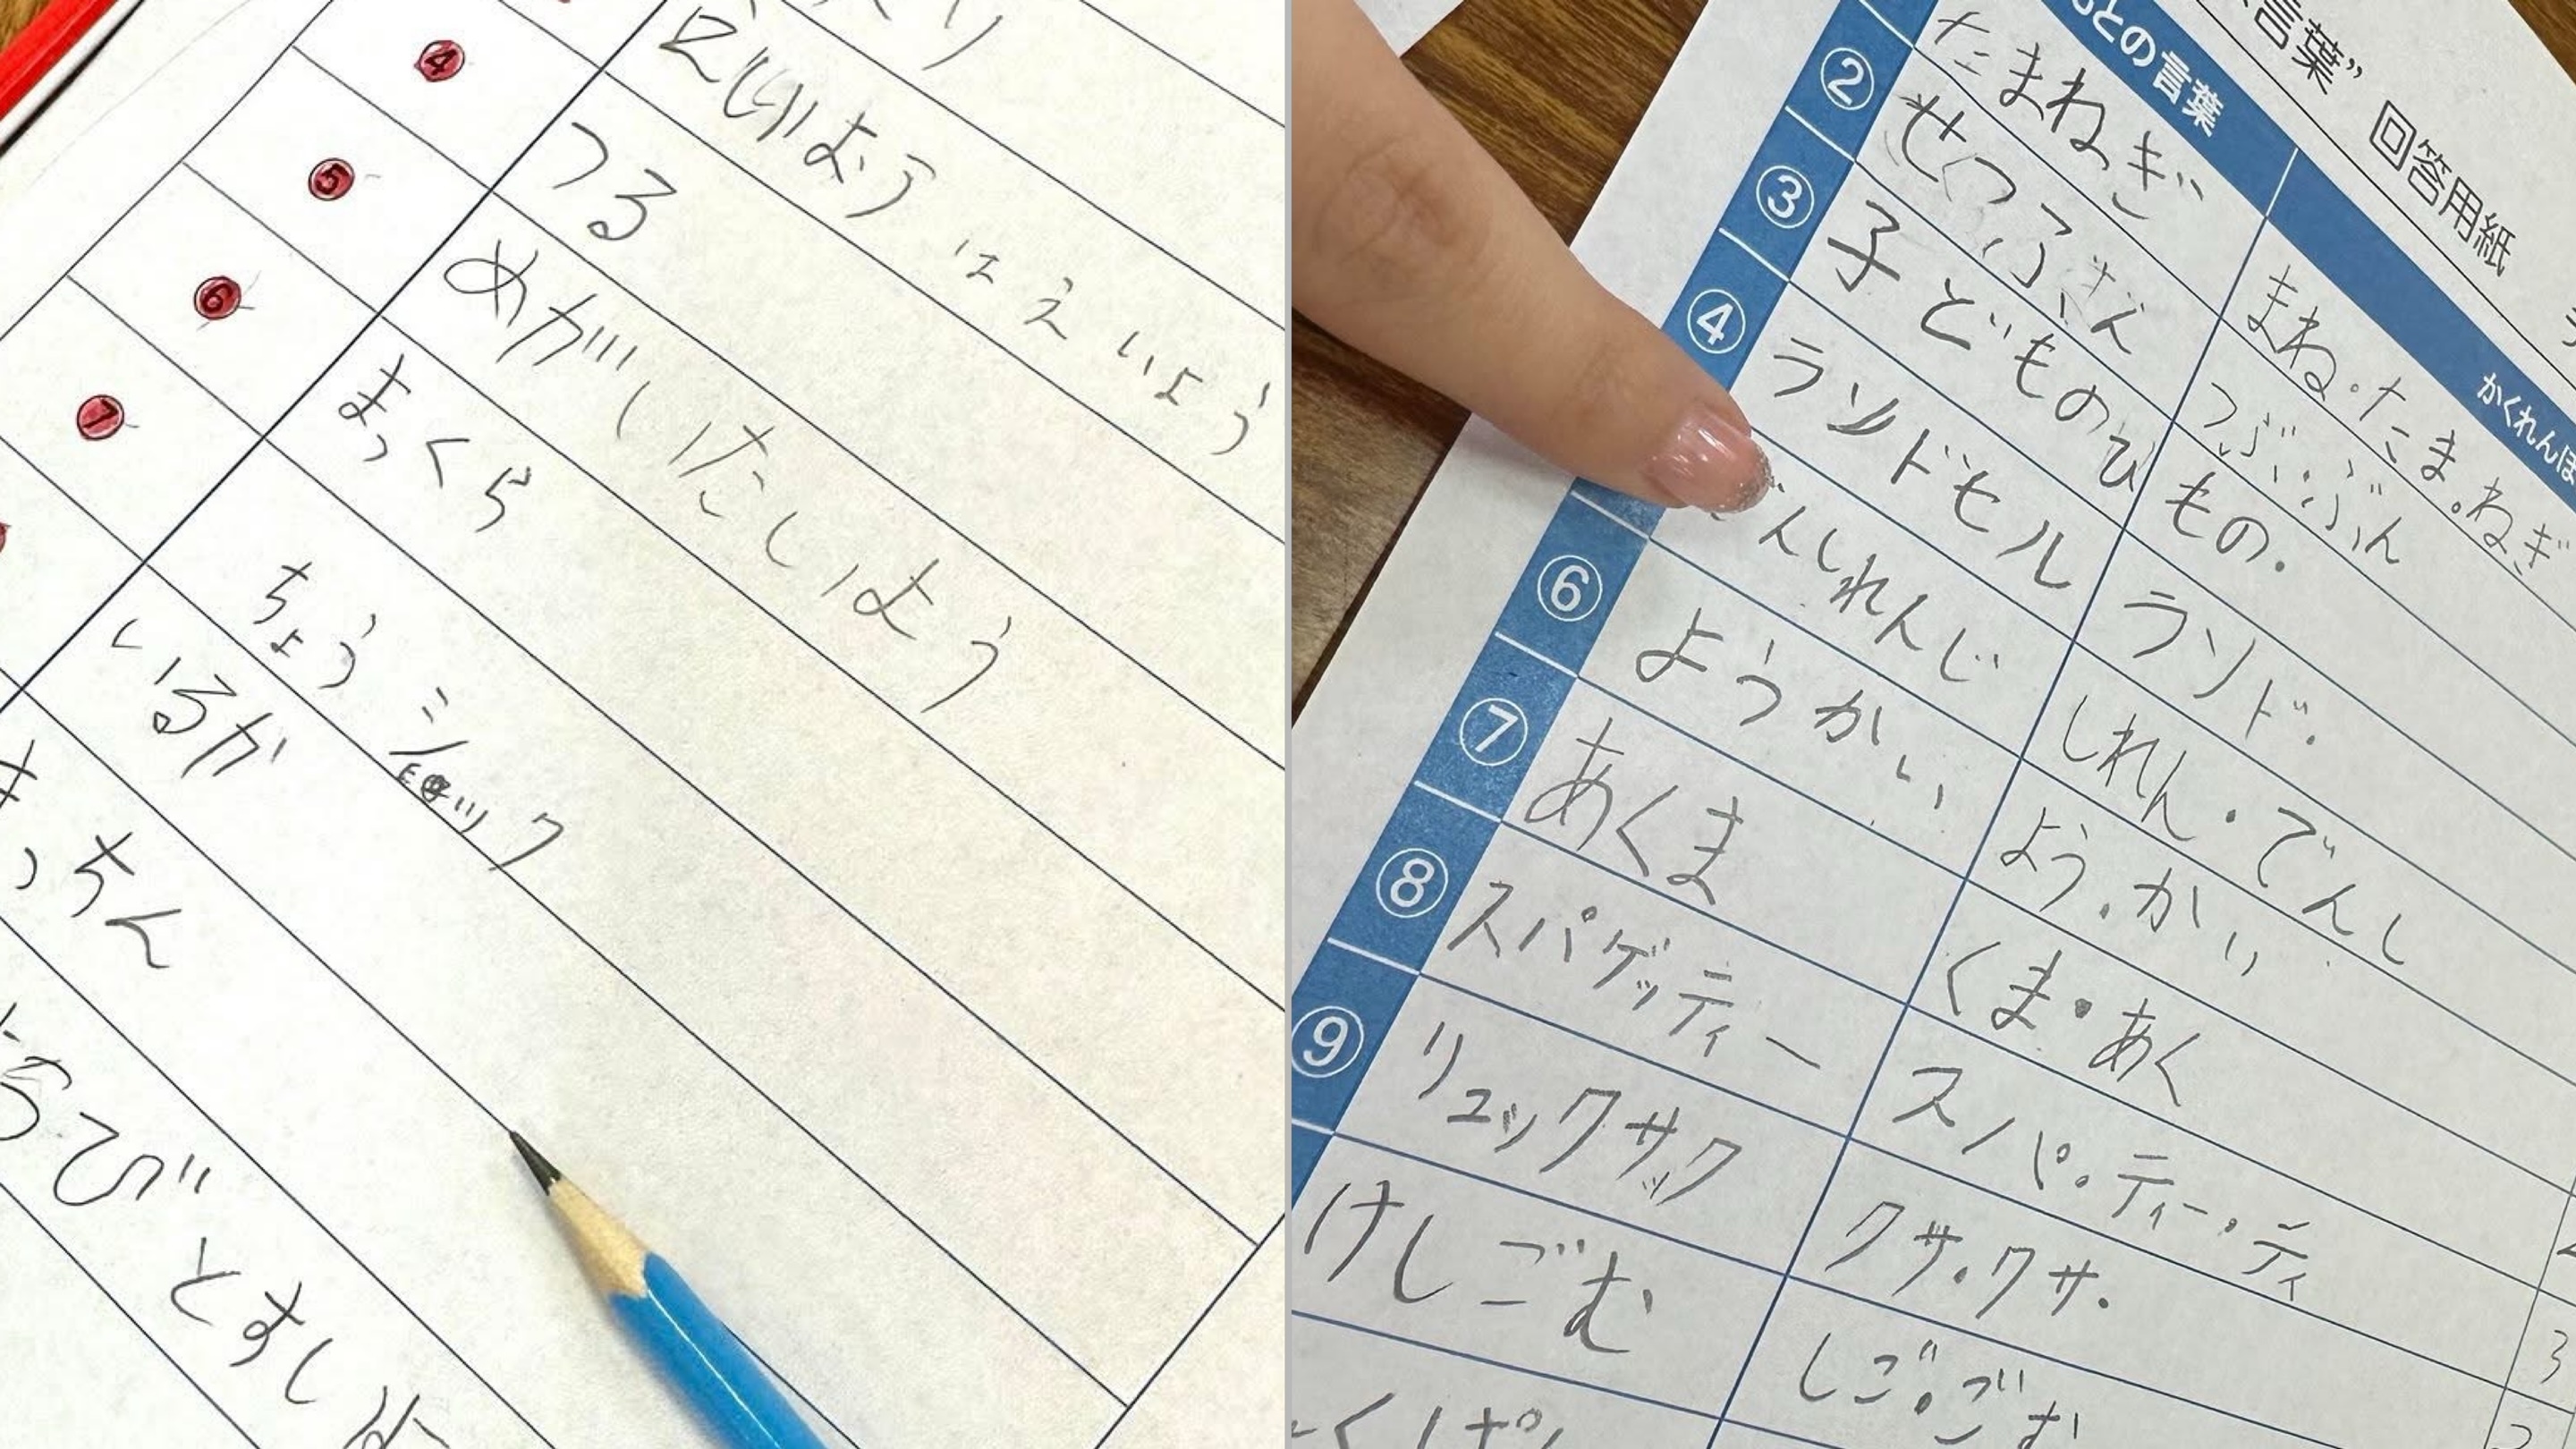 ④
⑤ つる
⑥ めがいけたいよう
⑦ まっくら
ちょう
いるか
っちん
言葉” 回答用紙
もとの言葉
かくれんぼ
たまねぎ まね・たま・ねぎ
② せつぶん つぶ・ぶん
③ 子どものひ もの・
④ ランドセル ランド・
んしれんじ しれん・でんし
⑥ ようかい よう・かい
⑦ あくま くま・あく
⑧ スパゲッティー スパ・ティー・ティ
⑨ リュックサック クサ・クサ・
けしごむ しご・ごむ